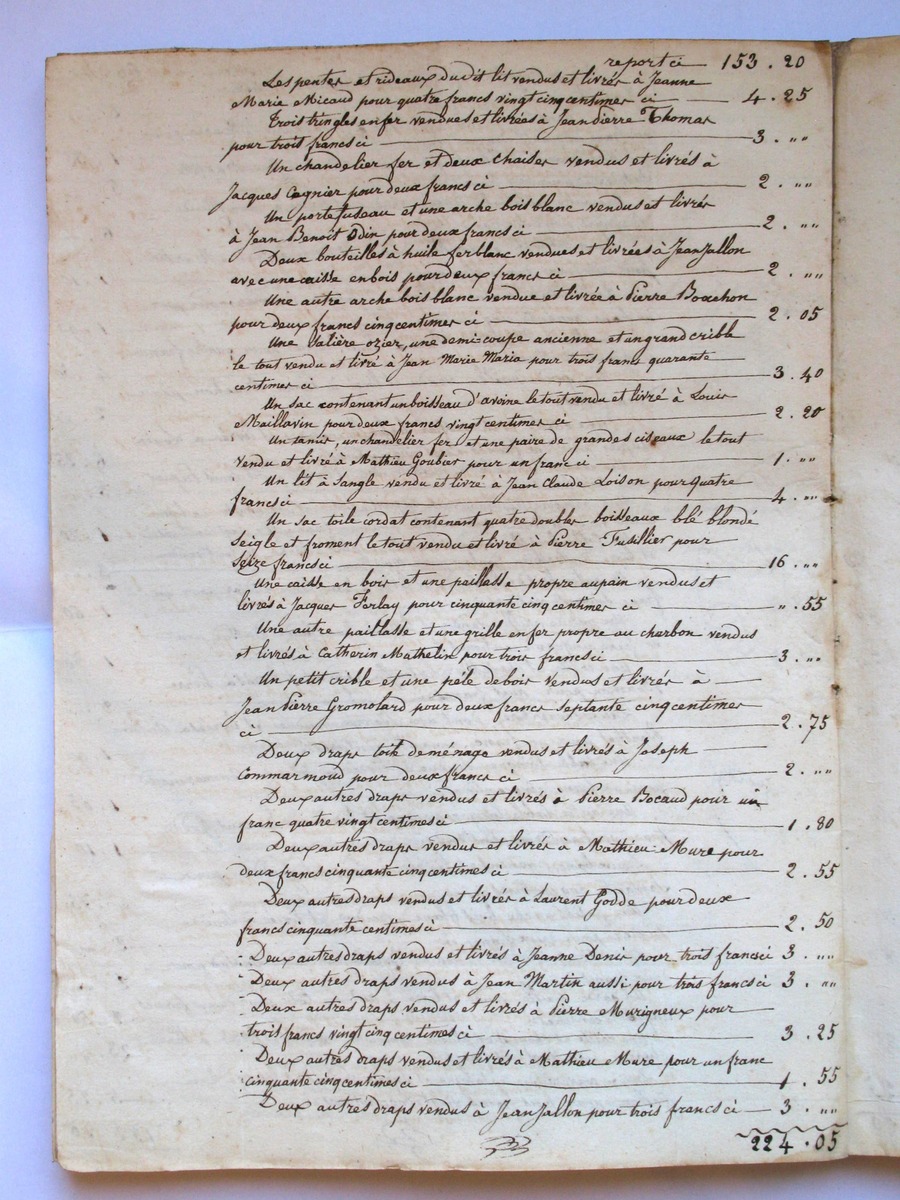 report ci 153 . 20
Les pentes et rideaux du dit lit vendus et livrés à Jeanne
Marie Micaud pour quatre francs vingt cinq centimes ci 4 . 25
Trois tringles en fer vendues et livrées à Jean Pierre Thomas
pour trois francs ci 3 . ""
Un chandelier fer et deux chaises vendus et livrés à
Jacques Cognier pour deux francs ci 2 . ""
Un porte fuseau et une arche bois blanc vendus et livrés
à Jean Benoit Odin pour deux francs ci 2 . ""
Deux bouteilles à huile ferblanc vendues et livrées à Jean Jallon
avec une caisse en bois pour deux francs ci 2 . ""
Une autre arche bois blanc vendue et livrée à Pierre Bouchon
pour deux francs cinq centimes ci 2 . 05
Une salière ozier, une demi-coupe ancienne et un grand crible
le tout vendu et livré à Jean Marie Maria pour trois francs quarante
centimes ci 3 . 40
Un sac contenant un boisseau d'avoine le tout vendu et livré à Louis
Maillavin pour deux francs vingt centimes ci 2 . 20
Un tamis, un chandelier fer et une paire de grandes ciseaux le tout
vendu et livré à Mathieu Goubier pour un franc ci 1 . ""
Un lit à sangle vendu et livré à Jean Claude Loison pour quatre
francs ci 4 . ""
Un sac toile cordat contenant quatre doubles boisseaux blé blondé
seigle et froment le tout vendu et livré à Pierre Fusillier pour
seize francs ci 16 . ""
Une caisse en bois et une paillasse propre au pain vendus et
livrés à Jacques Ferlay pour cinquante cinq centimes ci " . 55
Une autre paillasse et une grille en fer propre au charbon vendus
et livrés à Catherin Mathelin pour trois francs ci 3 . ""
Un petit crible et une pêle de bois vendus et livrés à
Jean Pierre Gromolard pour deux francs septante cinq centimes
ci 2 . 75
Deux draps toile de ménage vendus et livrés à Joseph
Commarmond pour deux francs ci 2 . ""
Deux autres draps vendus et livrés à Pierre Bocaud pour un
franc quatre vingt centimes ci 1 . 80
Deux autres draps vendus et livrés à Mathieu Mure pour
deux francs cinquante cinq centimes ci 2 . 55
Deux autres draps vendus et livrés à Laurent Godde pour deux
francs cinquante centimes ci 2 . 50
Deux autres draps vendus et livrés à Jeanne Denis pour trois francs ci 3 . ""
Deux autres draps vendus à Jean Martin aussi pour trois francs ci 3 . ""
Deux autres draps vendus et livrés à Pierre Murigneux pour
trois francs vingt cinq centimes ci 3 . 25
Deux autres draps vendus et livrés à Mathieu Mure pour un franc
cinquante cinq centimes ci 1 . 55
Deux autres draps vendus à Jean Jallon pour trois francs ci 3 . ""
224 . 05